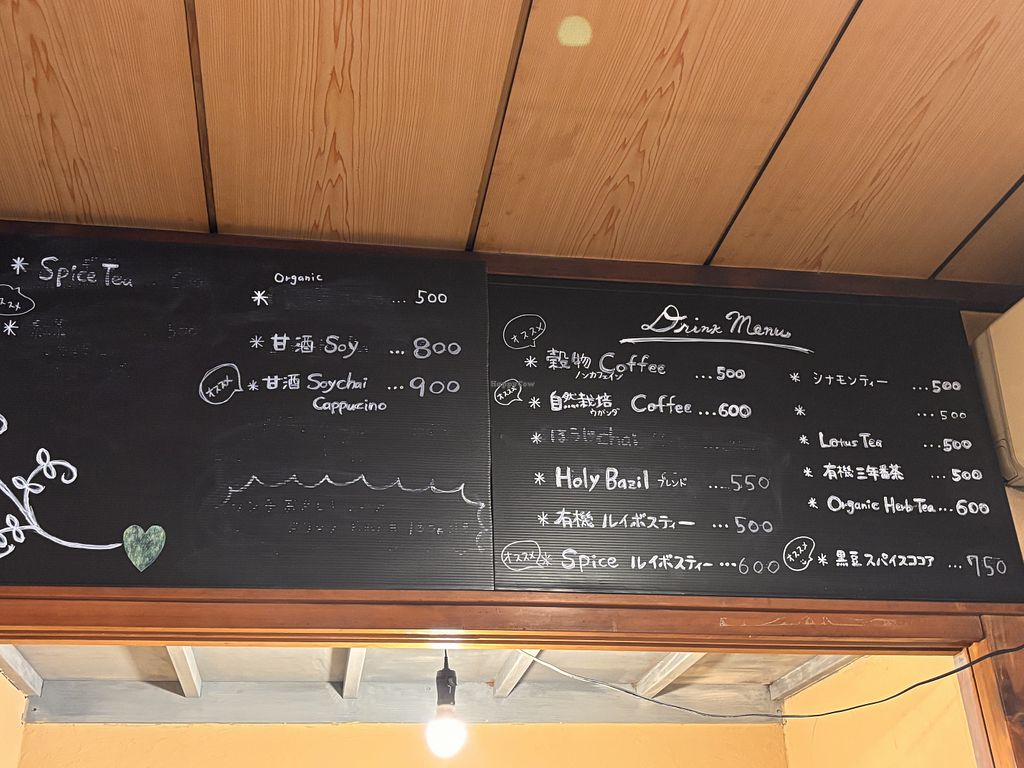 * Spice Tea
オススメ
*
Organic
* ... 500
* 甘酒 Soy ... 800
オススメ * 甘酒 Soychai ... 900
Cappuzino
Drink Menu
オススメ
* 穀物 Coffee ... 500
ノンカフェイン
オススメ * 自然栽培 Coffee ... 600
ウガンダ
* ほうじchai
* Holy Bazil ブレンド ... 550
* 有機 ルイボスティー ... 500
オススメ * Spice ルイボスティー ... 600
* シナモンティー ... 500
* ... 500
* Lotus Tea ... 500
* 有機三年番茶 ... 500
* Organic Herb Tea ... 600
オススメ * 黒豆スパイスココア ... 750